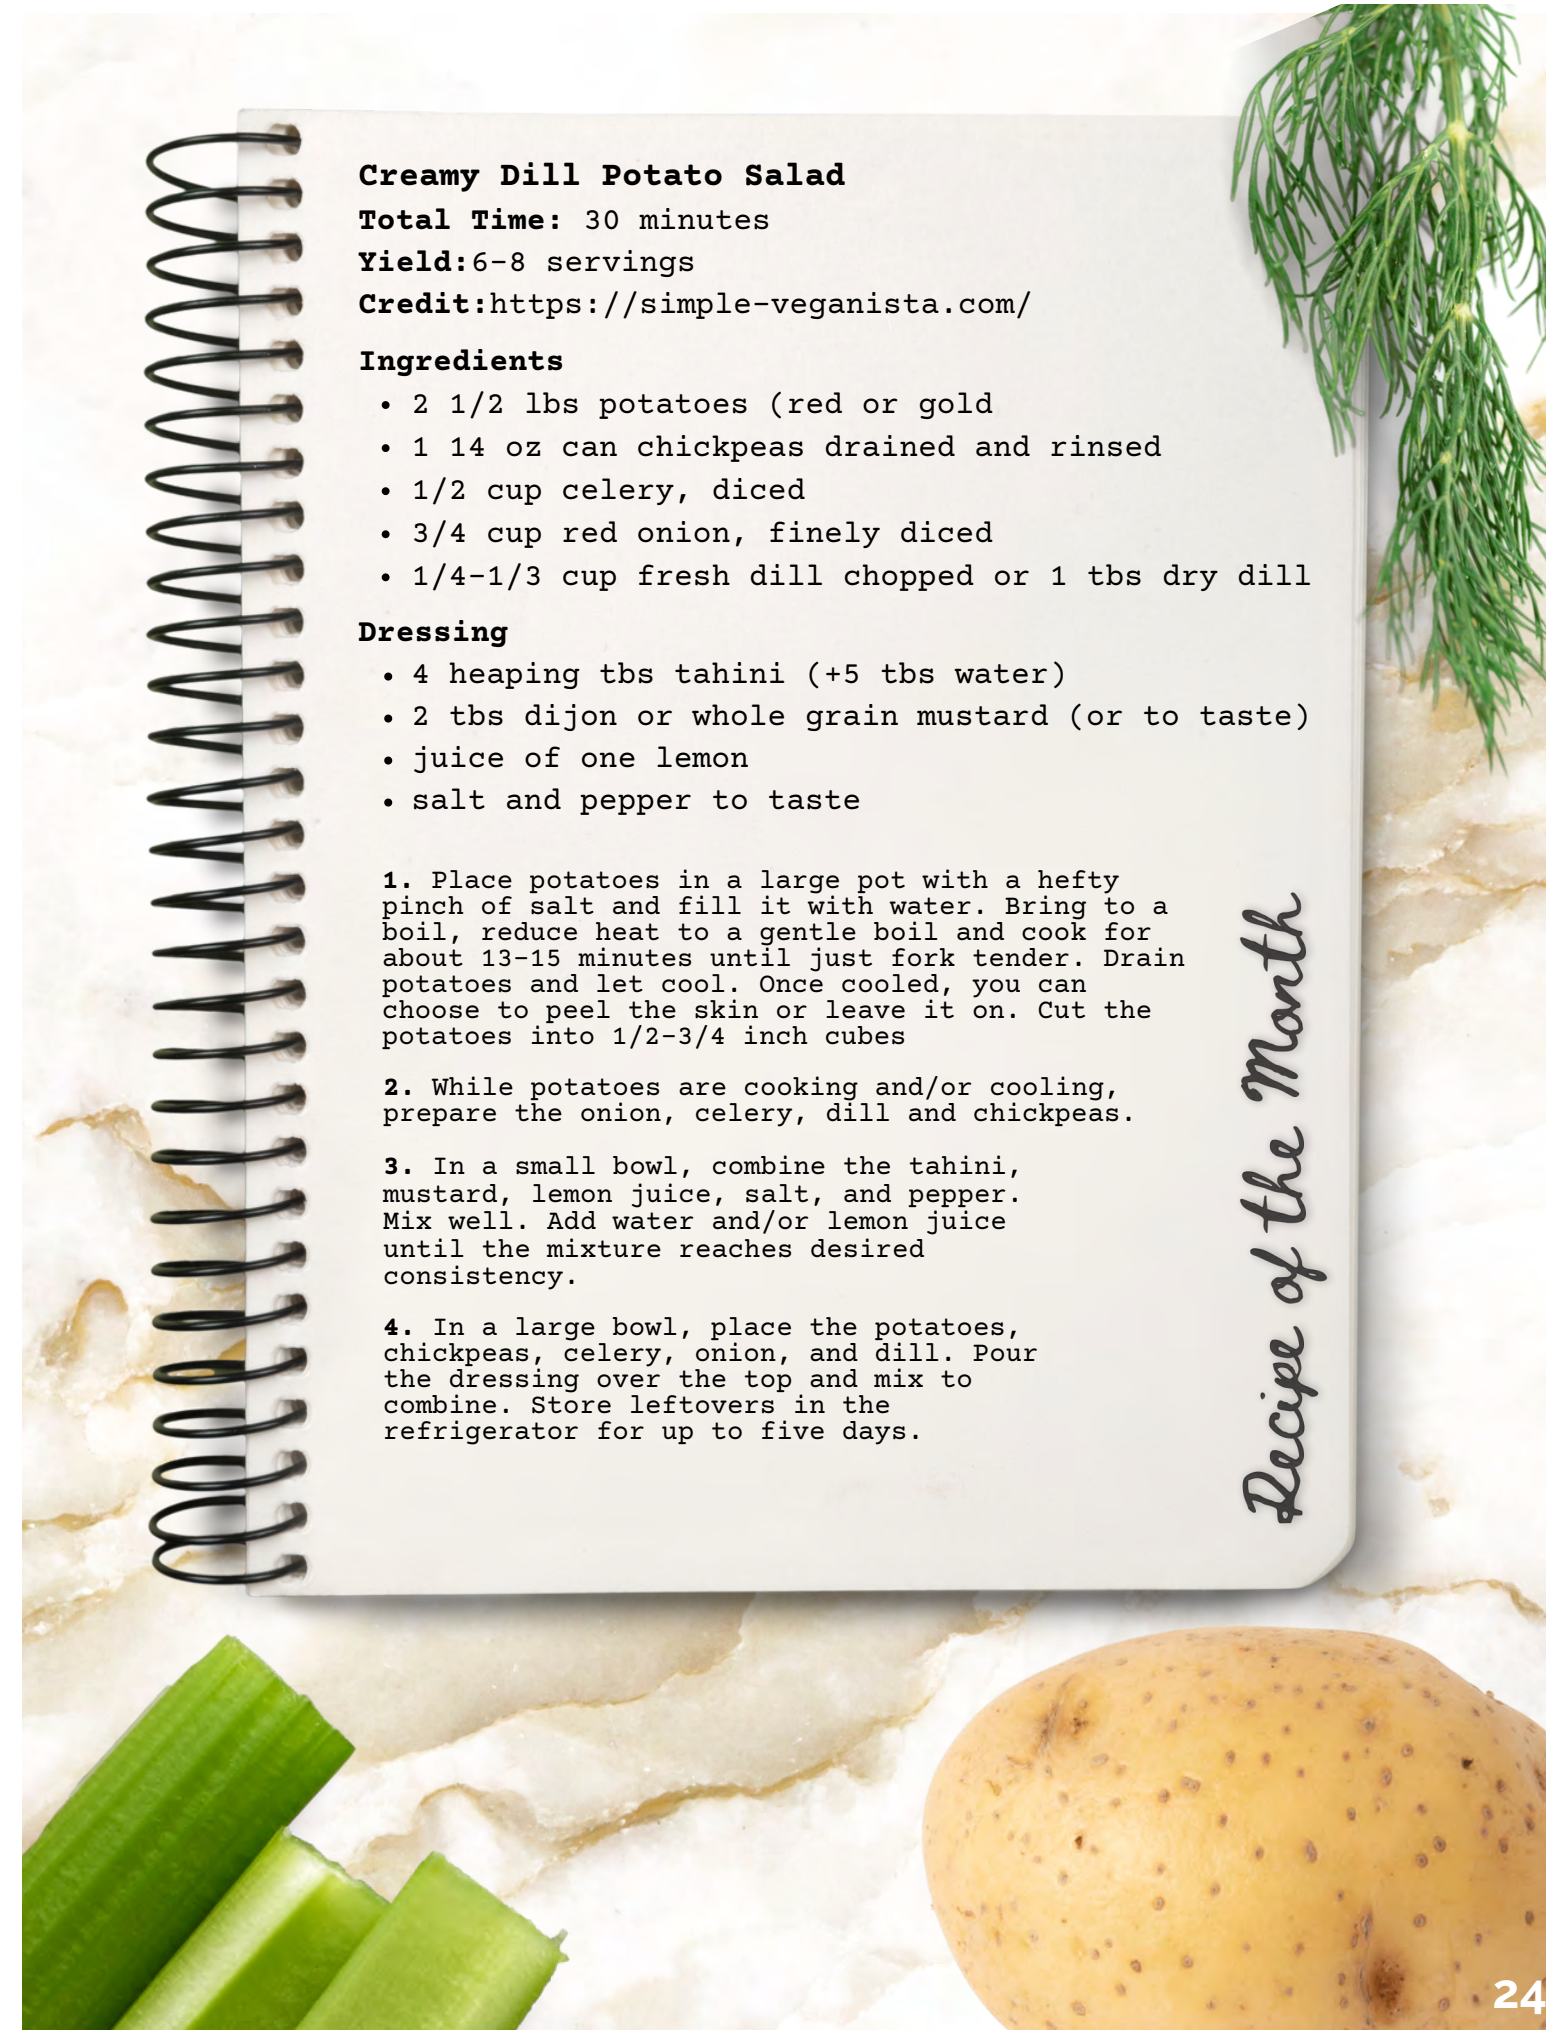 Creamy Dill Potato Salad
Total Time: 30 minutes
Yield:6-8 servings
Credit:https://simple-veganista.com/
Ingredients
• 2 1/2 lbs potatoes (red or gold
• 1 14 oz can chickpeas drained and rinsed
• 1/2 cup celery, diced
• 3/4 cup red onion, finely diced
• 1/4-1/3 cup fresh dill chopped or 1 tbs dry dill
Dressing
• 4 heaping tbs tahini (+5 tbs water)
• 2 tbs dijon or whole grain mustard (or to taste)
• juice of one lemon
• salt and pepper to taste
1. Place potatoes in a large pot with a hefty
pinch of salt and fill it with water. Bring to a
boil, reduce heat to a gentle boil and cook for
about 13-15 minutes until just fork tender. Drain
potatoes and let cool. Once cooled, you can
choose to peel the skin or leave it on. Cut the
potatoes into 1/2-3/4 inch cubes
2. While potatoes are cooking and/or cooling,
prepare the onion, celery, dill and chickpeas.
3. In a small bowl, combine the tahini,
mustard, lemon juice, salt, and pepper.
Mix well. Add water and/or lemon juice
until the mixture reaches desired
consistency.
4. In a large bowl, place the potatoes,
chickpeas, celery, onion, and dill. Pour
the dressing over the top and mix to
combine. Store leftovers in the
refrigerator for up to five days.
Recipe of the Month
24